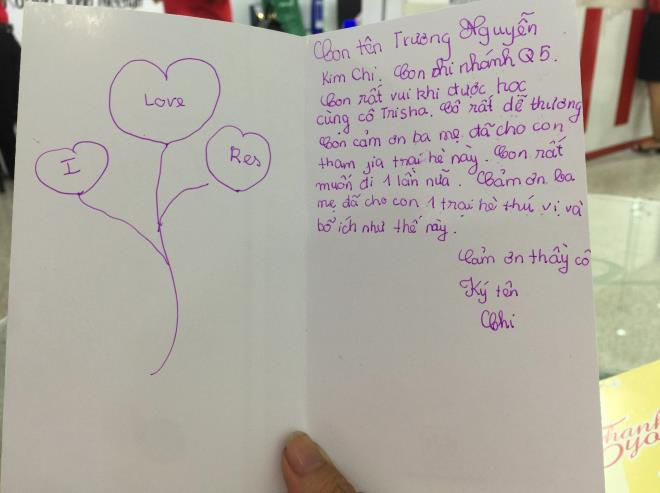 I
Love
Res
Con tên Trương Nguyễn
Kim Chi. Con chi nhánh Q5.
Con rất vui khi được học
cùng cô Trisha. Cô rất dễ thương
Con cảm ơn ba mẹ đã cho con
tham gia trại hè này. Con rất
muốn đi 1 lần nữa. Cảm ơn ba
mẹ đã cho con 1 trại hè thú vị và
bổ ích như thế này.
Cảm ơn thầy cô
Ký tên
Chi
Thank
you